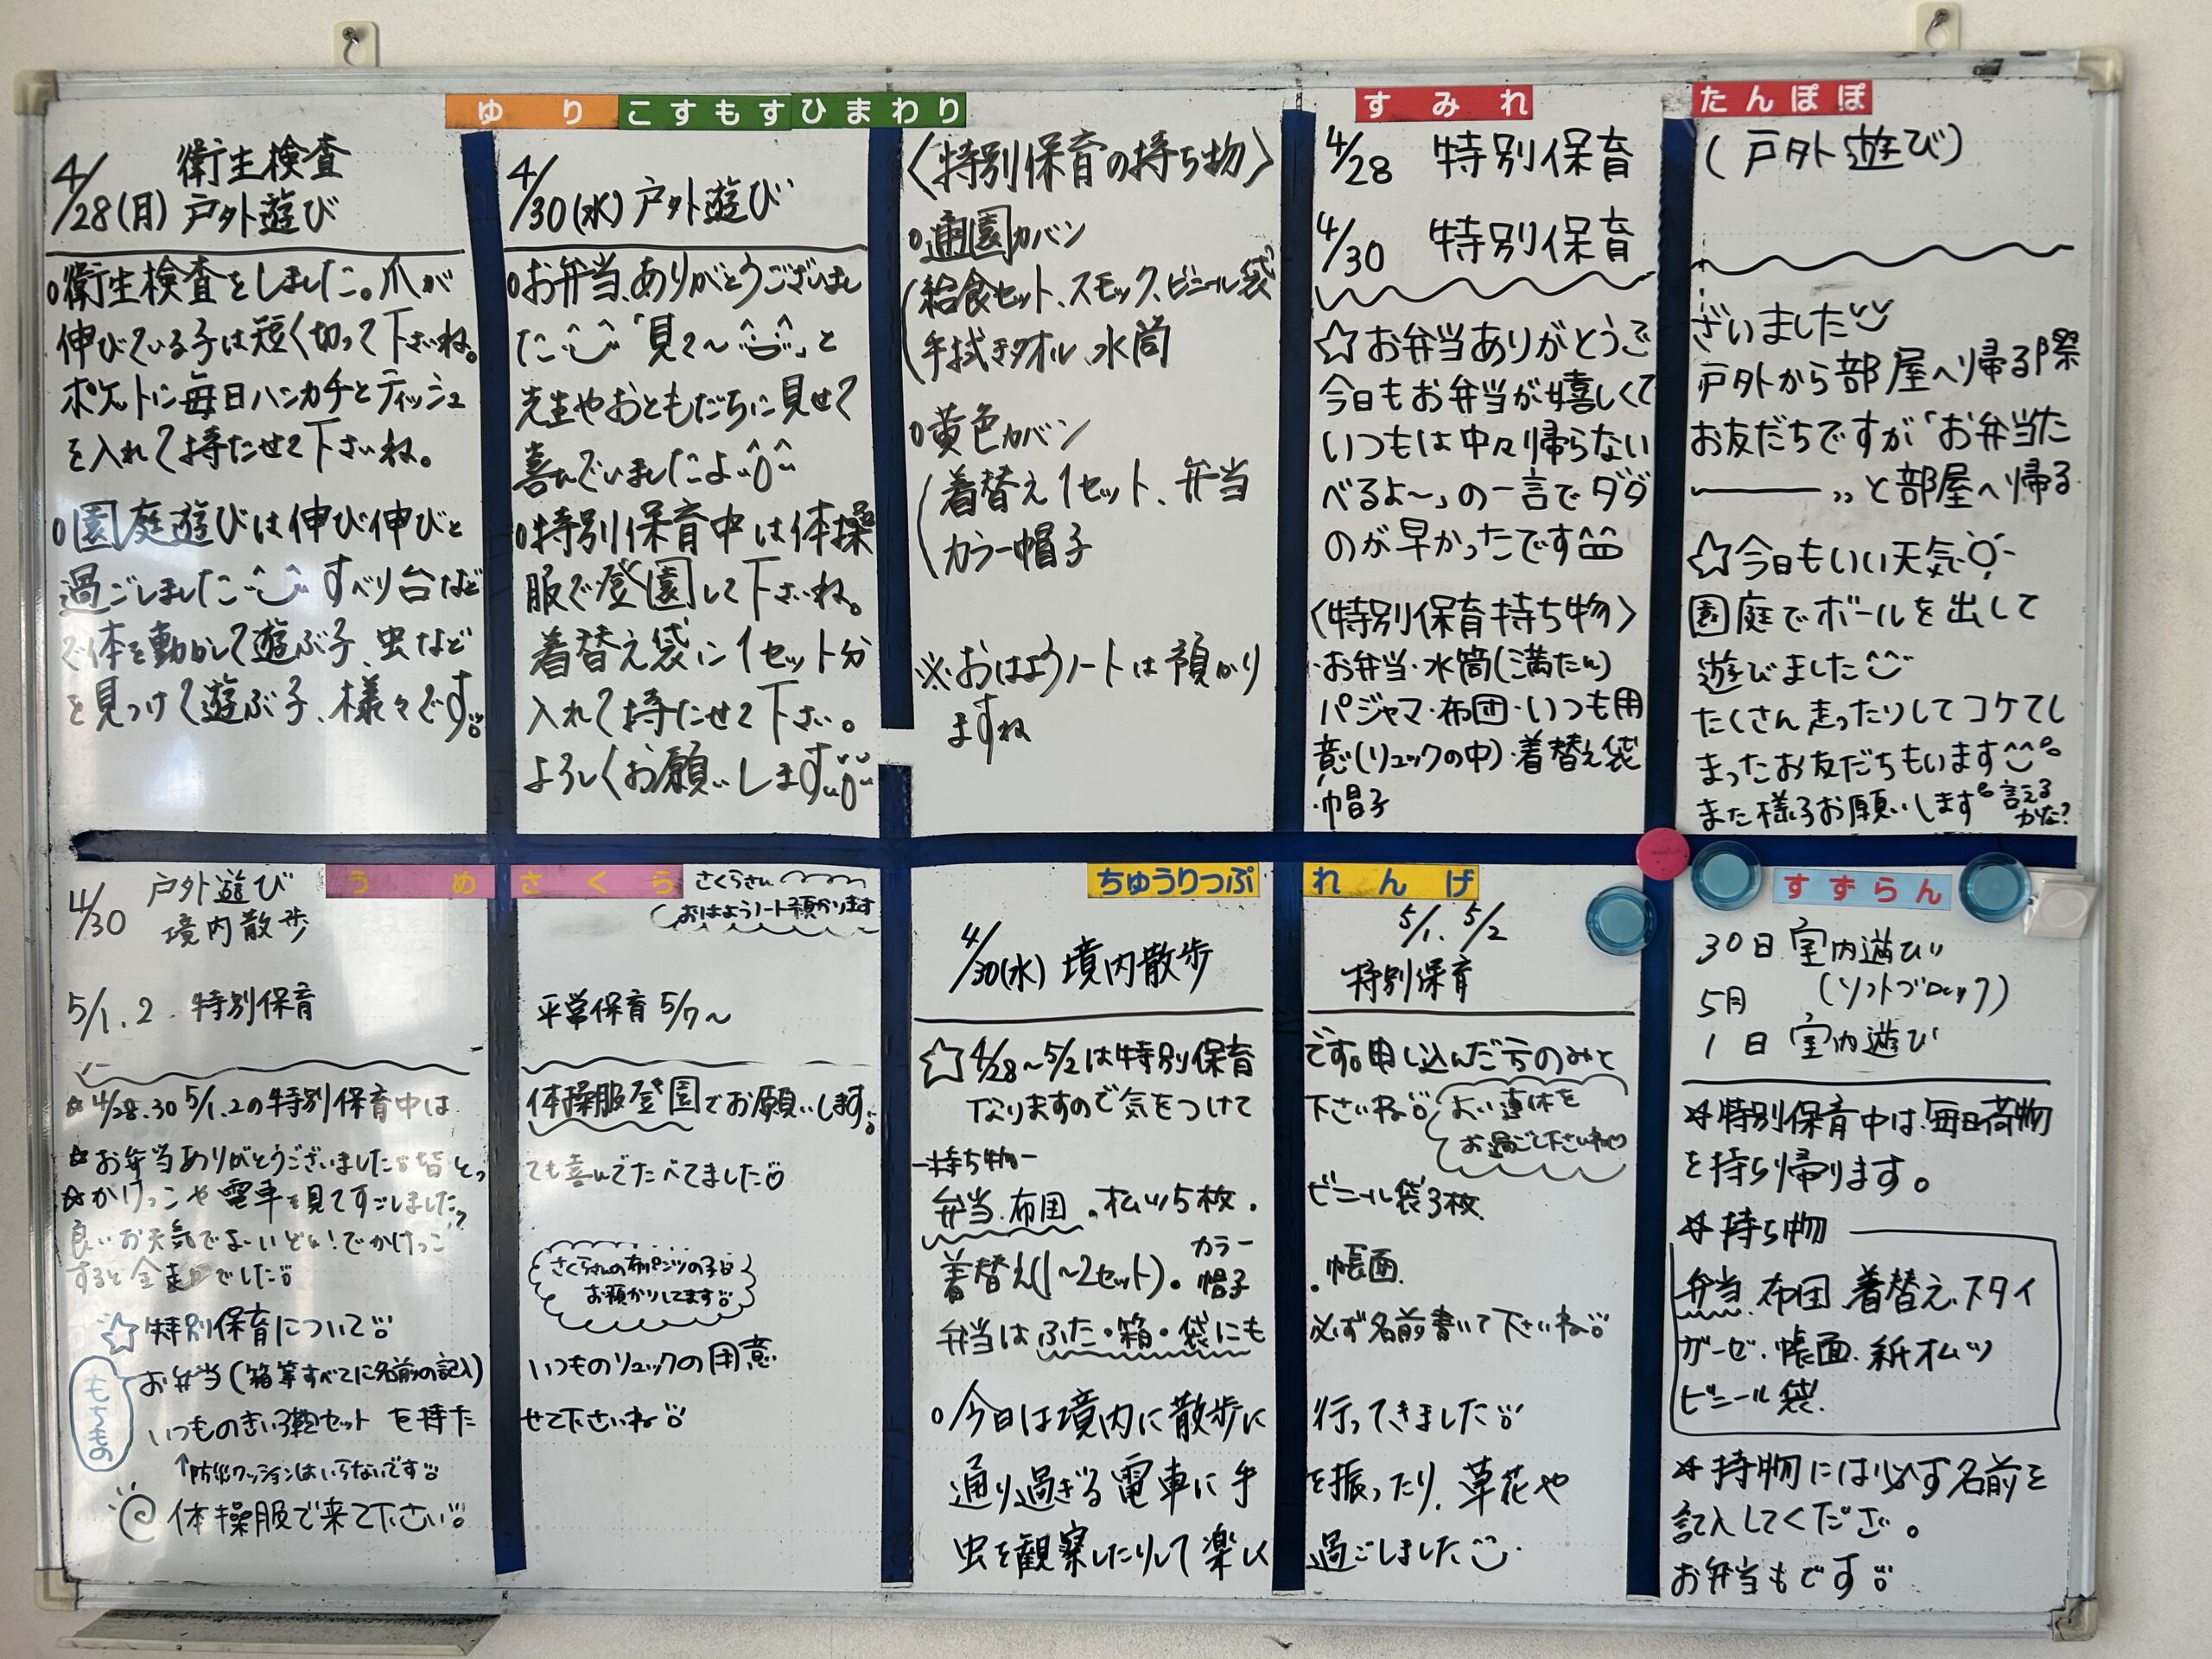 ゆり こすもす ひまわり
4/28(月) 衛生検査
戸外遊び
○衛生検査をしました。爪が
伸びている子は短く切って下さいね。
ポケットに毎日ハンカチとティッシュ
を入れて持たせて下さいね。
○園庭遊びは伸び伸びと
過ごしました すべり台など
で体を動かして遊ぶ子、虫など
を見つけて遊ぶ子、様々です。
4/30(水) 戸外遊び
○お弁当、ありがとうございまし
た 「見て〜」と
先生やおともだちに見せて
喜んでいましたよ
○特別保育中は体操
服で登園して下さいね。
着替え袋に1セット分
入れて持たせて下さい。
よろしくお願いします
〈特別保育の持ち物〉
○通園カバン
(給食セット、スモック、ビニール袋
手拭きタオル、水筒
○黄色カバン
(着替え1セット、弁当
カラー帽子
※おはようノートは預かり
ますね
すみれ
たんぽぽ
4/28 特別保育 (戸外遊び)
4/30 特別保育
☆お弁当ありがとうご ざいました
今日もお弁当が嬉しくて 戸外から部屋へ帰る際
いつもは中々帰らない お友だちですが「お弁当た
べるよ〜」の一言でダダ ー〃と部屋へ帰る
のが早かったです
〈特別保育持ち物〉
・お弁当・水筒(満たん)
パジャマ・布団・いつも用
意(リュックの中)・着替え袋
・帽子
☆今日もいい天気
園庭でボールを出して
遊びました
たくさん走ったりしてコケてし
まったお友だちもいます
また様子お願いします 言える
かな?
うめ さくら
さくらさん
おはようノート預かります
4/30 戸外遊び
境内散歩
5/1.2. 特別保育 平常保育 5/7〜
☆4/28.30 5/1.2の特別保育中は 体操服登園でお願いします
☆お弁当ありがとうございました 皆とっ ても喜んでたべてました
☆かけっこや電車を見てすごしました
良いお天気でよーいどん!でかけっこ
すると全走でした
さくらさんの布パンツの子は
お預かりしてます
☆特別保育について
もちもの
お弁当(箱等すべてに名前の記入) いつものリュックの用意
いつものきいろ鞄セット を持た せて下さいね
↑防災クッションはいらないです
体操服で来て下さい
ちゅうりっぷ
れんげ
4/30(水) 境内散歩
5/1. 5/2
特別保育
☆4/28〜5/2は特別保育 です。申し込んだ方のみと
なりますので気をつけて 下さいね
よい連休を
お過ごし下さいね
-持ち物-
弁当.布団.オムツ5枚. ビニール袋3枚.
着替え(1〜2セット)。カラー
帽子 .帳面.
弁当はふた・箱・袋にも 必ず名前書いて下さいね
○今日は境内に散歩に 行ってきました
通り過ぎる電車に手 を振ったり、草花や
虫を観察したりして楽しく 過ごしました
すずらん
30日 室内遊び
(ソフトブロック)
5月
1日 室内遊び
☆特別保育中は、毎日荷物
を持ち帰ります。
☆持ち物
弁当.布団.着替え.スタイ
ガーゼ.帳面.紙オムツ
ビニール袋.
☆持物には必ず名前を
記入してください。
お弁当もです